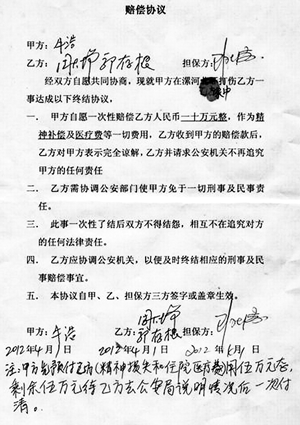 赔偿协议
甲方：牛浩
乙方：周 郭存根 担保方：
经双方自愿共同协商，现就甲方在漯河 打伤乙方一
事达成以下终结协议，
一 甲方自愿一次性赔偿乙方人民币一十万元整，作为精
神补偿及医疗费等一切费用，乙方收到甲方的赔偿款后，
乙方对甲方表示完全谅解，乙方并请求公安机关不再追究
甲方的任何责任
二、 乙方需协调公安部门使甲方免于一切刑事及民事责
任。
三、 此事一次性了结后双方不得结怨，相互不在追究对方
的任何法律责任。
四、 乙方应协调公安机关，以便及时终结相应的刑事及民
事赔偿事宜。
五、 本协议自甲、乙、担保方三方签字或盖章生效。
甲方：牛浩 乙方：周 郭存根 担保方：
2012年4月1日 2012年4月1日 2012年4月1日
注：甲方先预付乙方（精神损失和住院医疗费用伍万元整，
剩余伍万元待乙方去公安局说明情况后一次付
清。